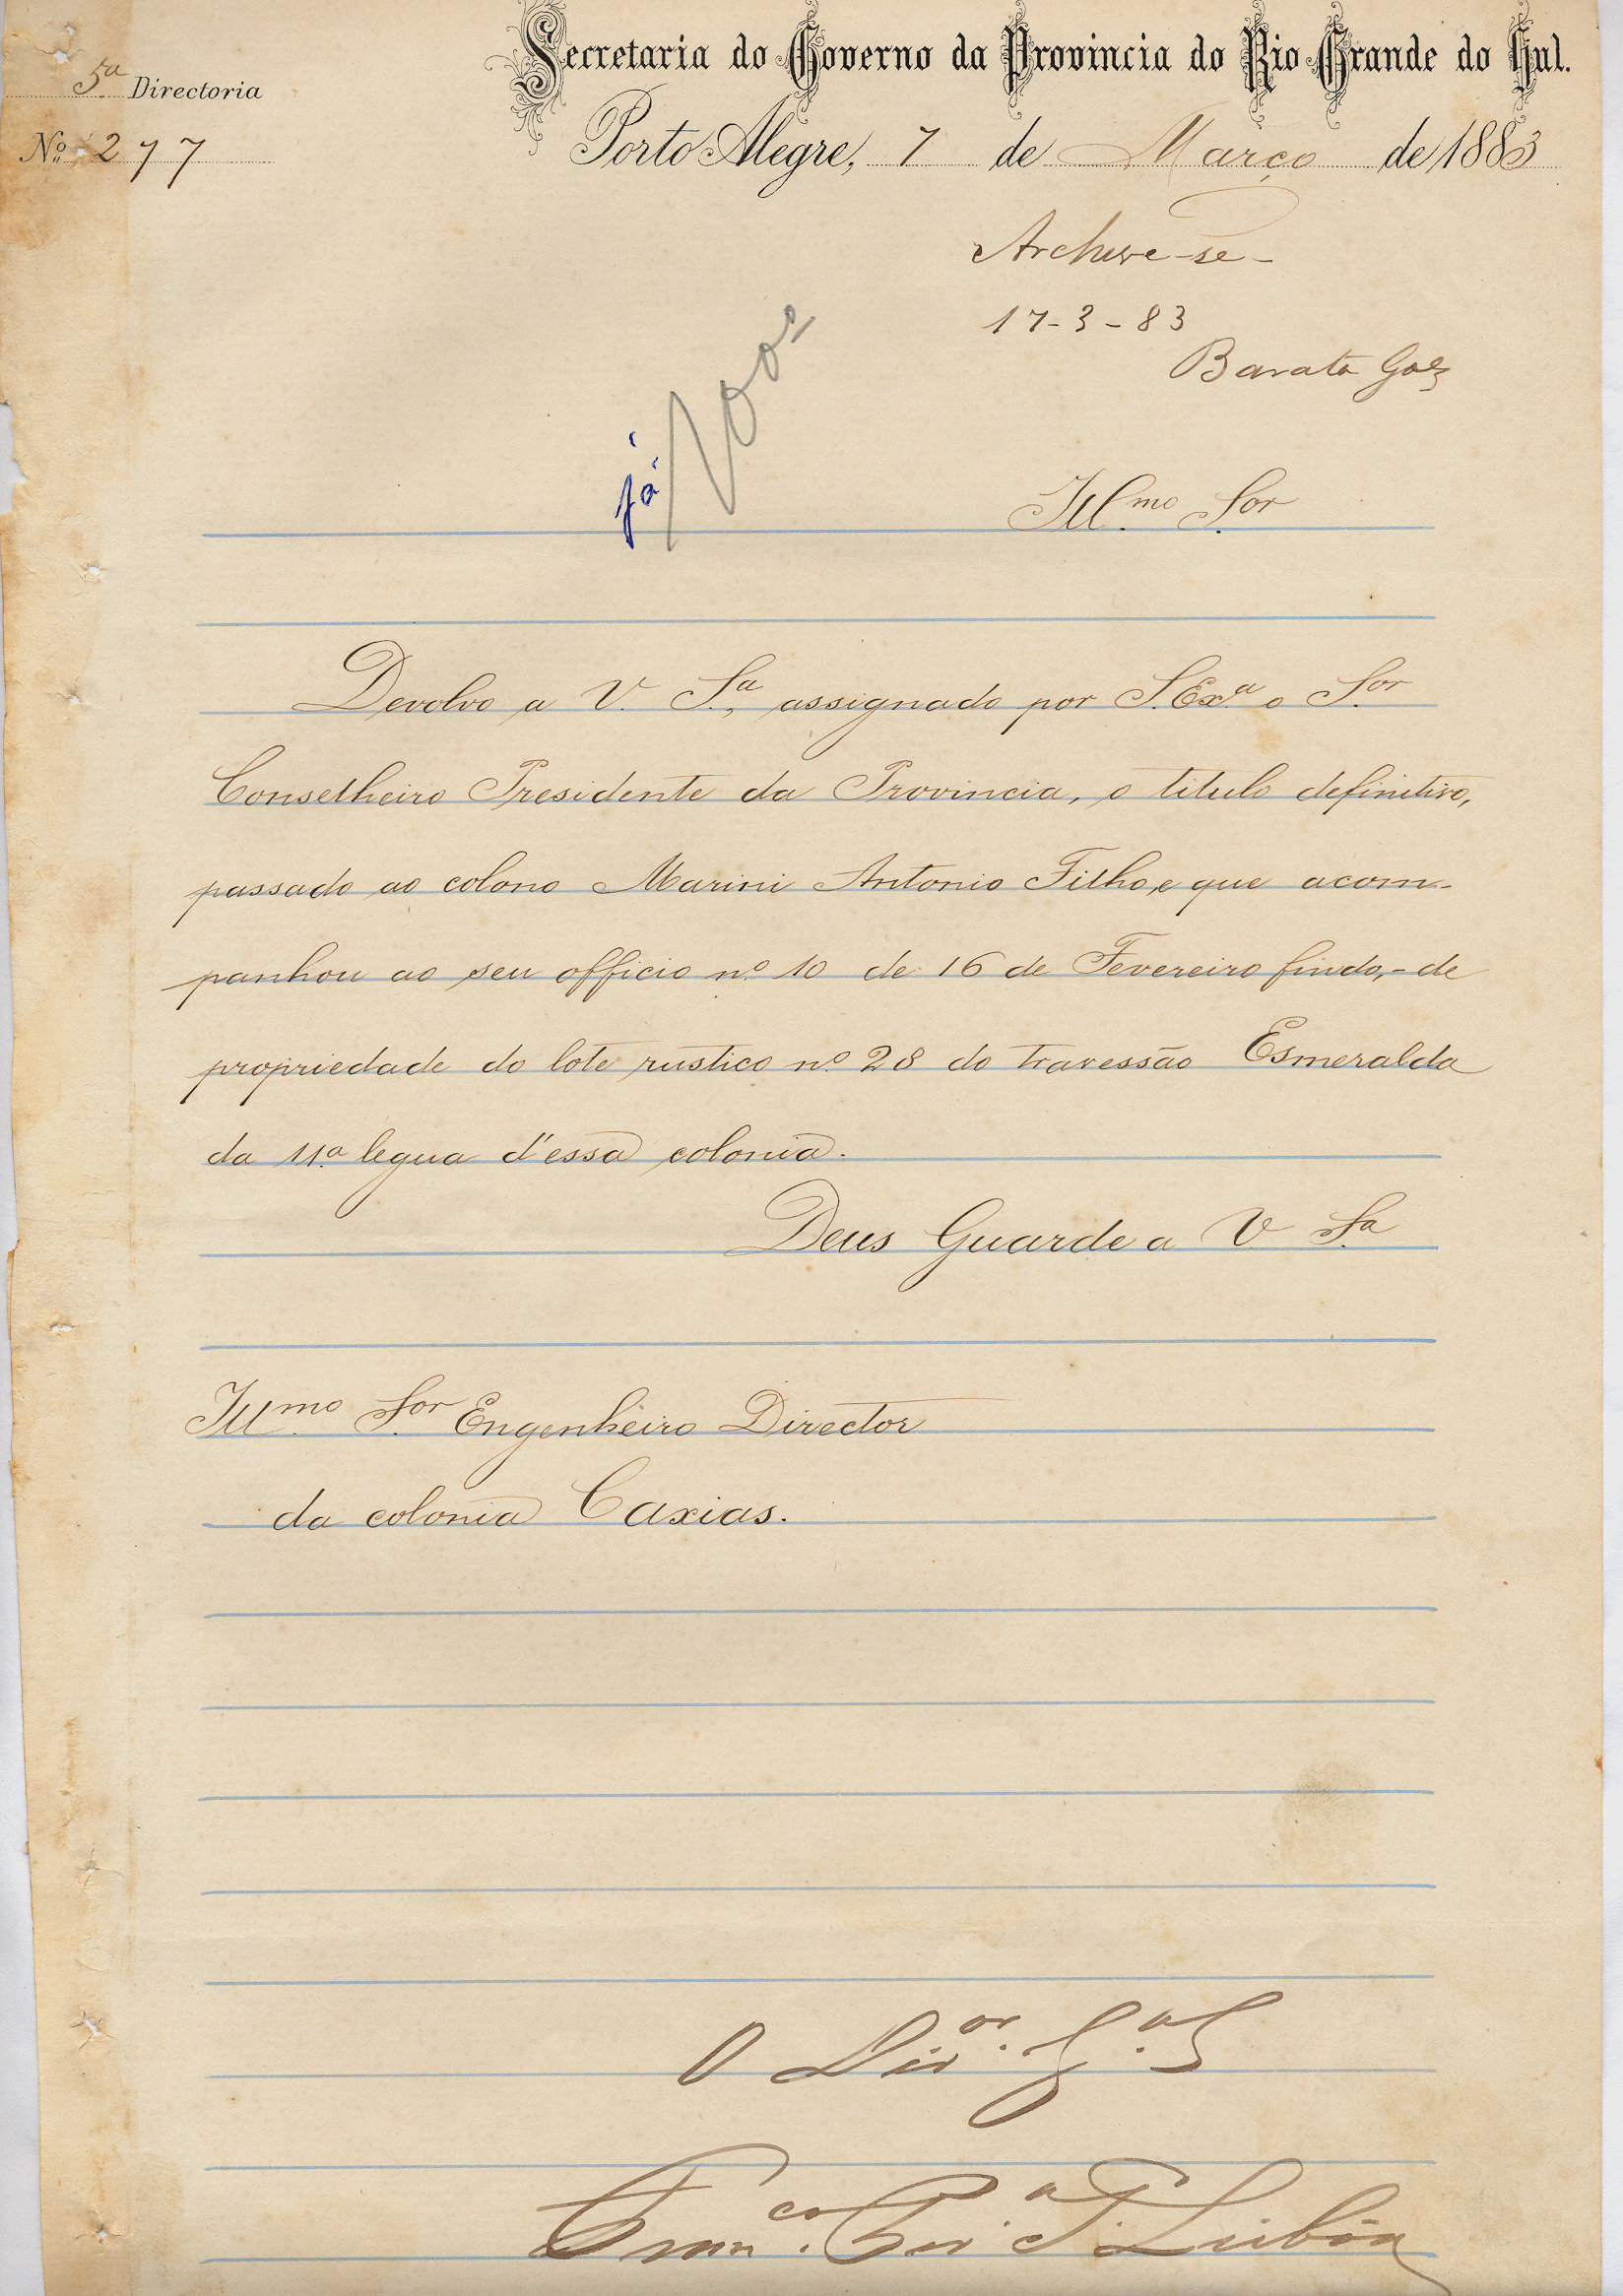 Secretaria do Governo da Provincia do Rio Grande do Sul.
5ª Directoria
Nº 277
Porto Alegre, 7 de Março de 1883
Archive-se-
17-3-83
Barata Goes
já
Illmo Sor
Devolvo a V. Sª, assignado por S. Exª o Sor
Conselheiro Presidente da Provincia, o titulo definitivo,
passado ao colono Marini Antonio Filho, e que acom-
panhou ao seu officio nº 10 de 16 de Fevereiro findo,- de
propriedade do lote rustico nº 28 do travessão Esmeralda
da 11ª legua d'essa colonia.
Deus Guarde a V Sª
Illmo Sor Engenheiro Director
da colonia Caxias.
O Dir.or G.al
Franco. Per.a S. Lisbôa